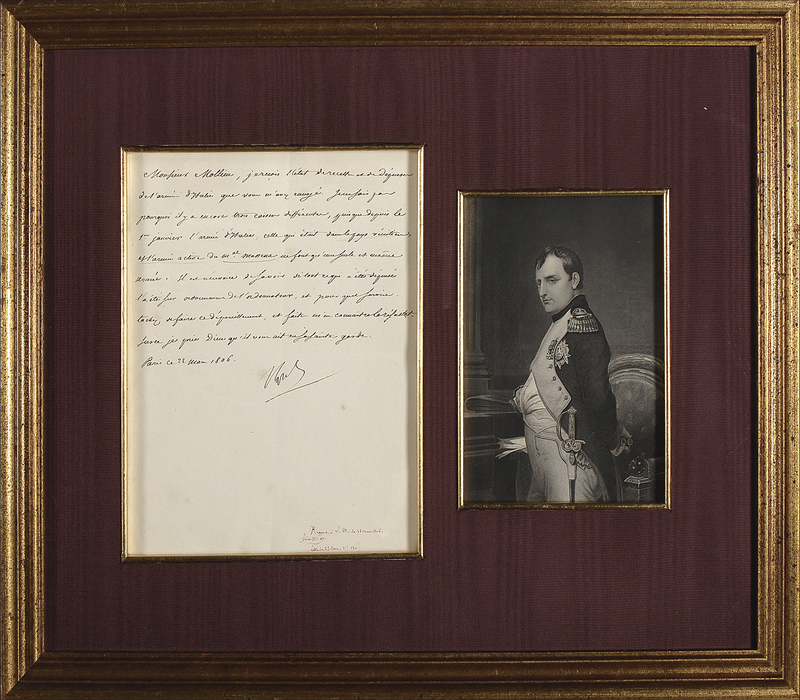 Monsieur Mollien, je reçois l'état de recette et de dépense
de l'armée d'Italie que vous m'avez envoyé. Je ne sais pas
pourquoi il y a encore trois caisses différentes, puisque depuis le
1er janvier l'armée d'Italie, celle qui était dans le pays vénitien,
et l'armée active du mal Massena ne font qu'une seule et même
armée. Il est nécessaire de savoir si tout ce qui a été dépensé
l'a été sur ordonnance de l'ordonnateur, et pour quel service.
tachez de faire ce dépouillement, et faites m'en connaitre le résultat.
Sur ce je prie Dieu qu'il vous ait en sa sainte garde.
Paris ce 22 mars 1806.
Nap